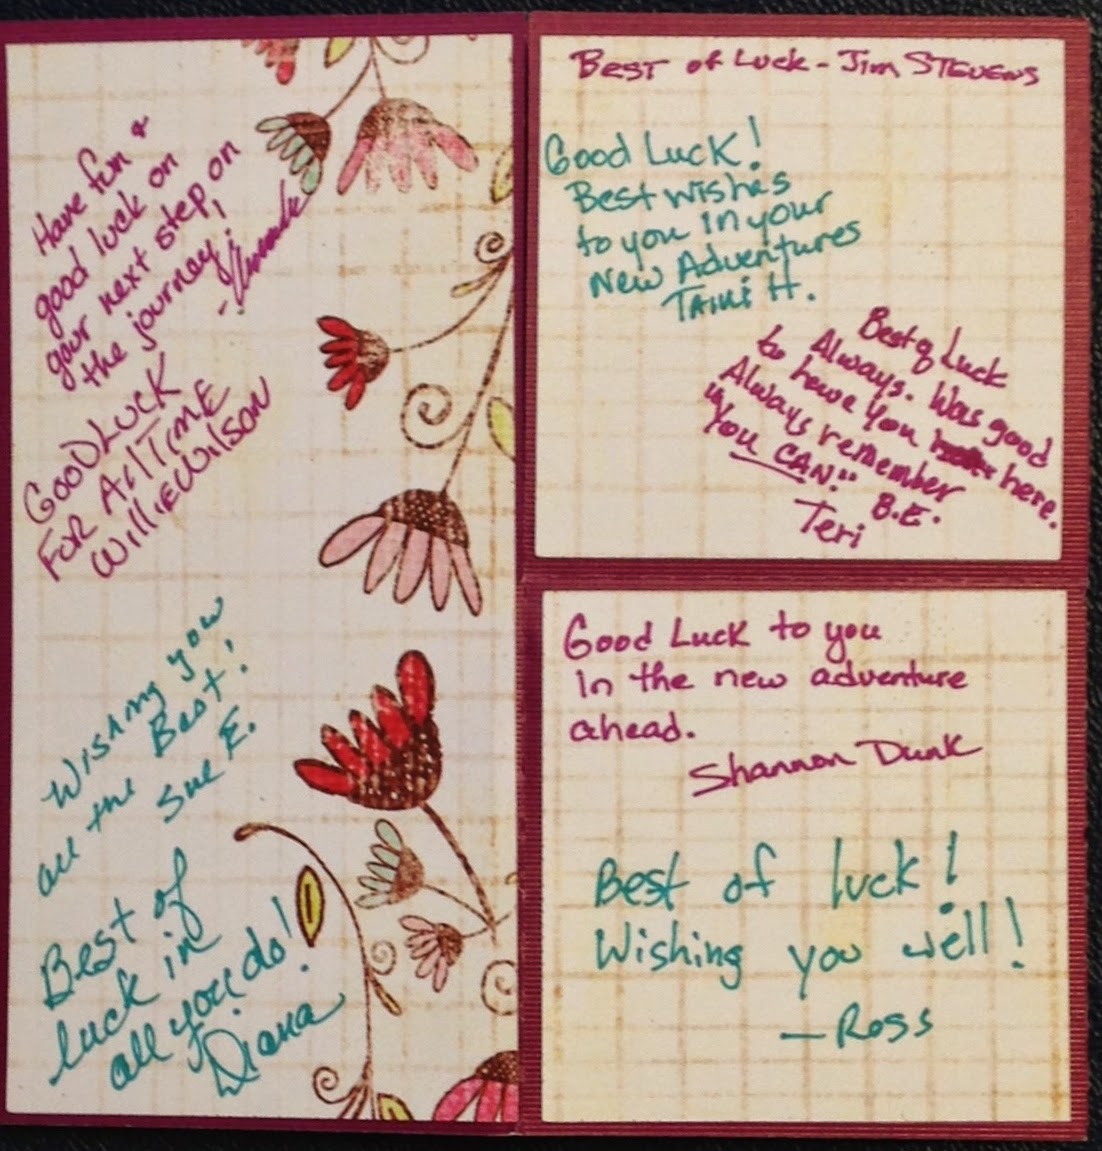 Have fun &
good luck on
your next step, on
the journey!
GOOD LUCK
FOR All TIME
Willie Wilson
Wishing you
all the Best!
Sue E.
Best of
luck in
all you do!
Diana
Best of Luck - Jim STEVENS
Good Luck!
Best wishes
to you in your
New Adventures
TAMI H.
Best of Luck
Always. Was good
to have you here.
Always remember
"You CAN!" B.E.
Teri
Good Luck to you
in the new adventure
ahead.
Shannon Dunk
Best of luck!
Wishing you well!
—Ross